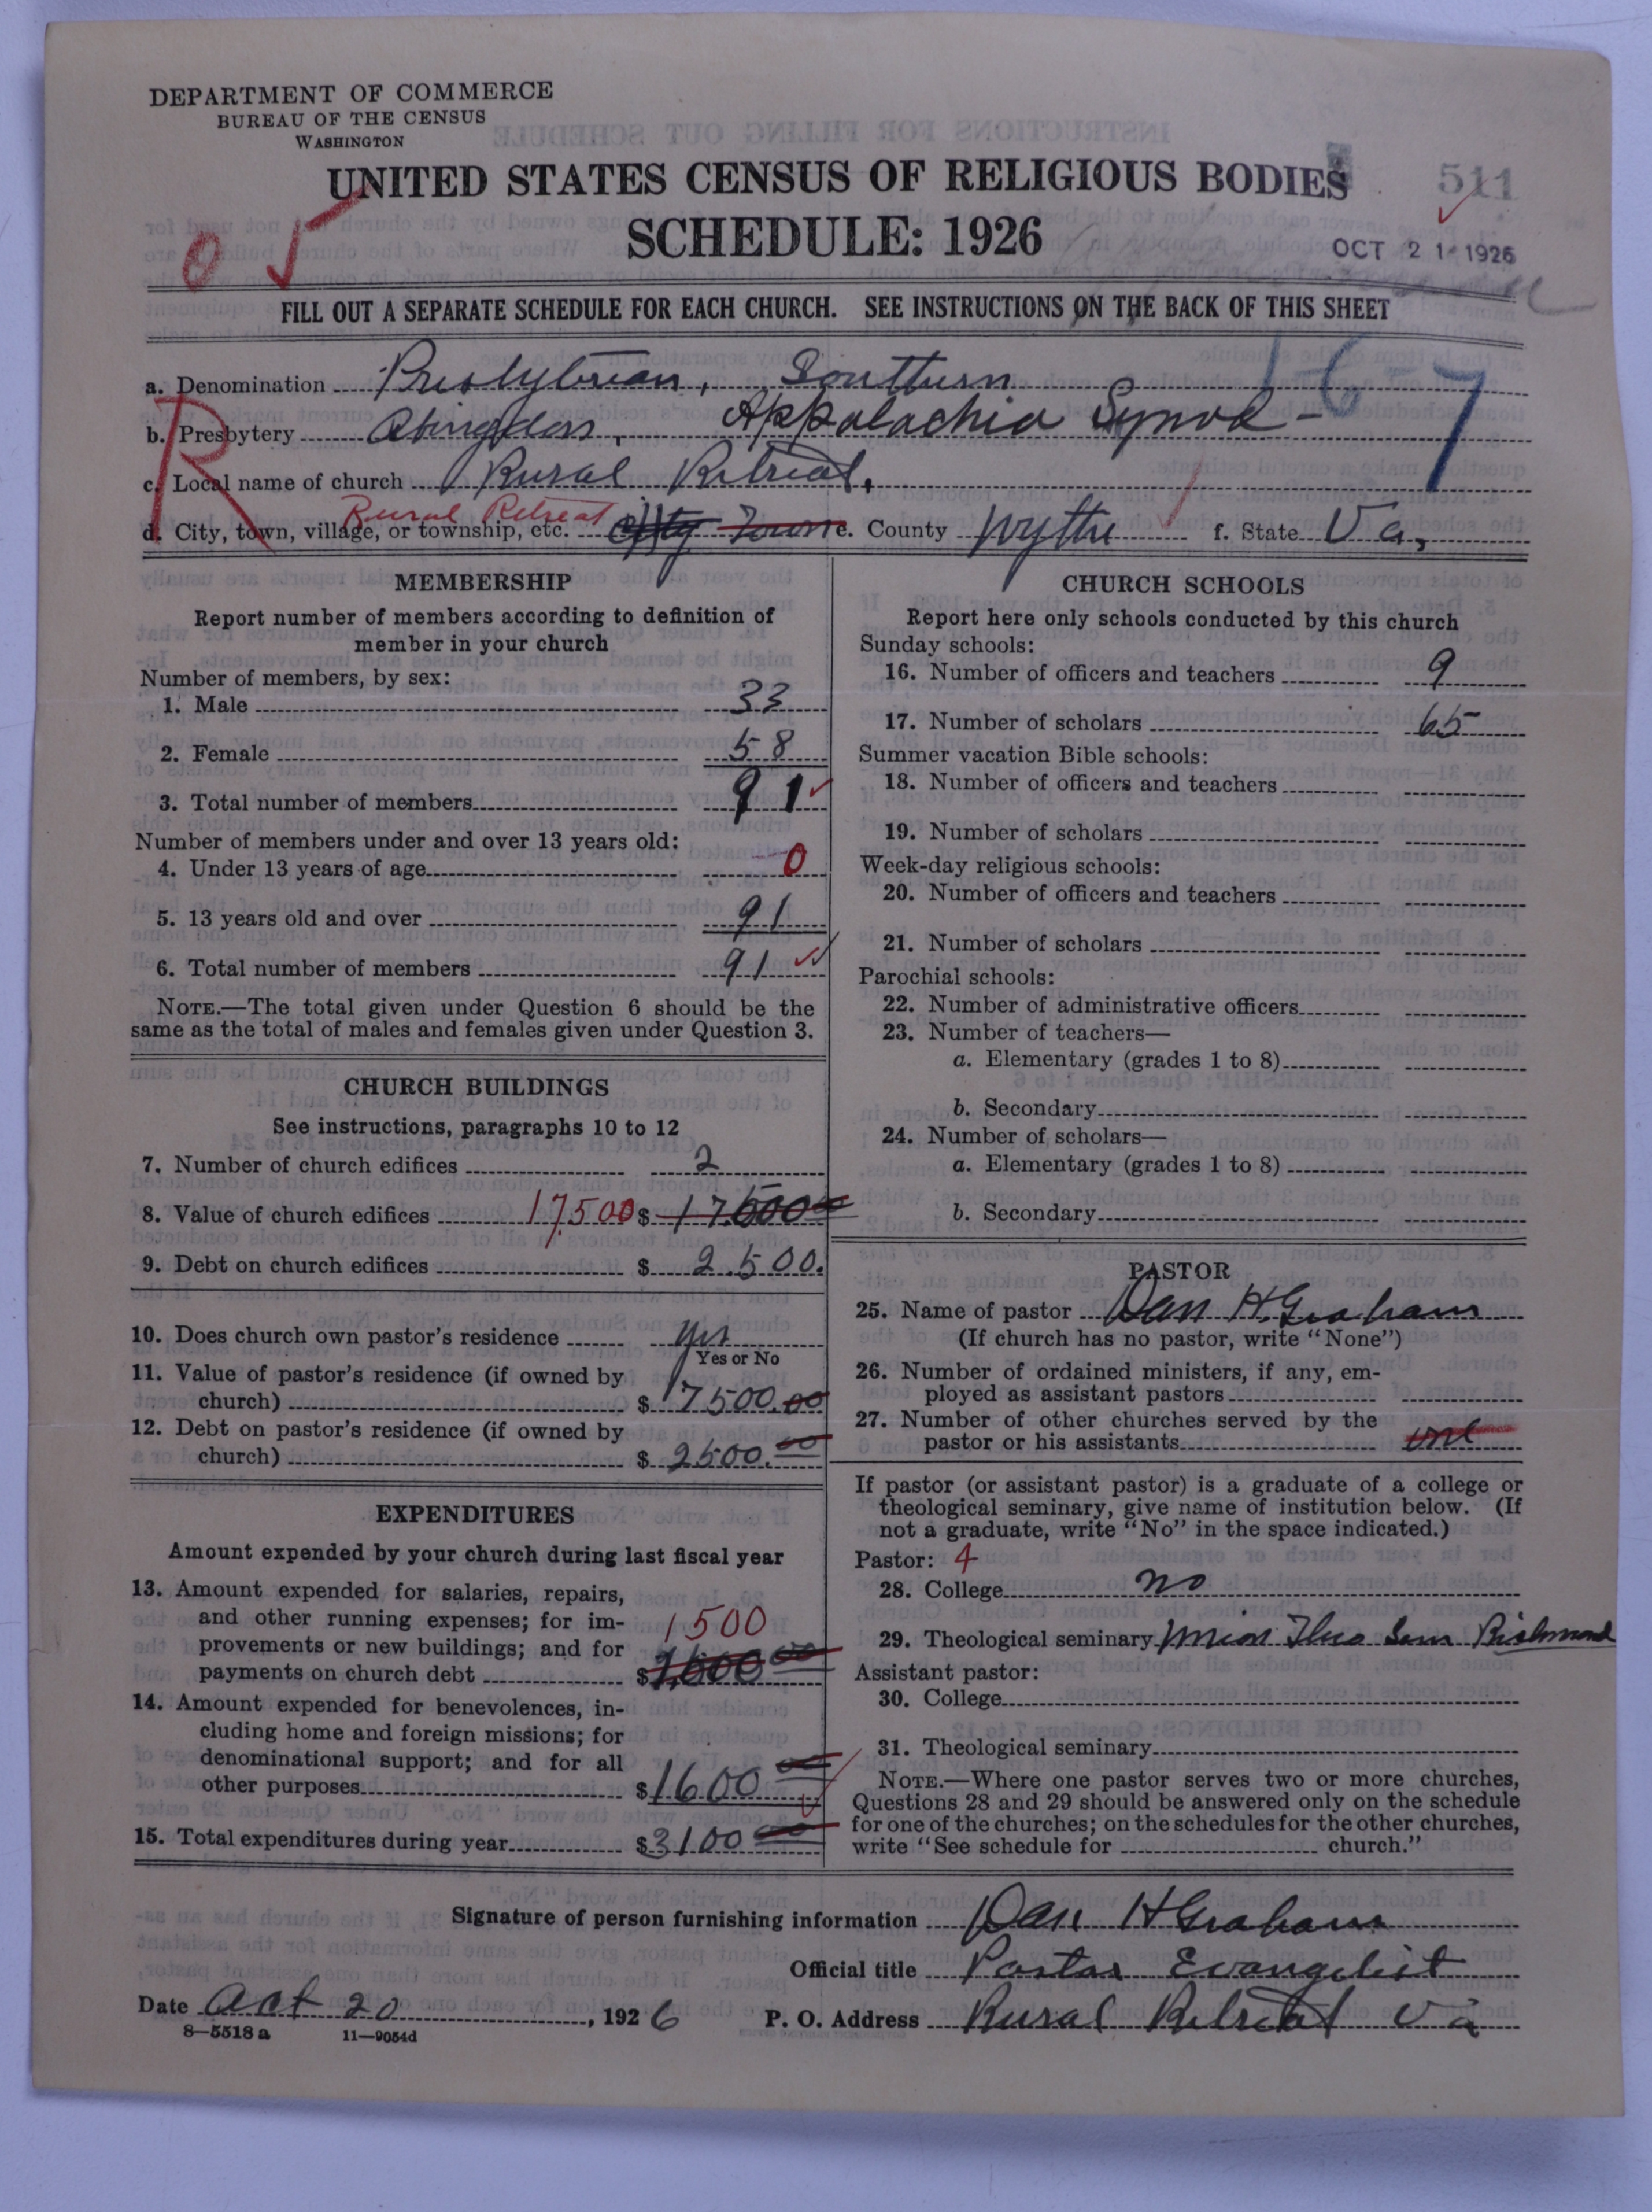 DEPARTMENT OF COMMERCE
BUREAU OF THE CENSUS
WASHINGTON
UNITED STATES CENSUS OF RELIGIOUS BODIES
511
SCHEDULE: 1926
OCT 21 1926
FILL OUT A SEPARATE SCHEDULE FOR EACH CHURCH. SEE INSTRUCTIONS ON THE BACK OF THIS SHEET
a. Denomination Presbyterian, Southern 1-6-7
b. Presbytery Abingdon, Appalachia Synod-
R
c. Local name of church Rural Retreat,
d. City, town, village, or township, etc. Rural Retreat Town e. County Wythe f. State Va,
MEMBERSHIP
Report number of members according to definition of
member in your church
Number of members, by sex:
1. Male 33
2. Female 58
3. Total number of members 91
Number of members under and over 13 years old:
4. Under 13 years of age 0
5. 13 years old and over 91
6. Total number of members 91
NOTE.—The total given under Question 6 should be the
same as the total of males and females given under Question 3.
CHURCH BUILDINGS
See instructions, paragraphs 10 to 12
7. Number of church edifices 2
8. Value of church edifices 17500 $ 17.500 00
9. Debt on church edifices $ 2.500.
10. Does church own pastor's residence yes
Yes or No
11. Value of pastor's residence (if owned by
church) $ 7500.00
12. Debt on pastor's residence (if owned by
church) $ 2500.00
EXPENDITURES
Amount expended by your church during last fiscal year
13. Amount expended for salaries, repairs,
and other running expenses; for im-
provements or new buildings; and for
payments on church debt 1500 $ 1,500 00
14. Amount expended for benevolences, in-
cluding home and foreign missions; for
denominational support; and for all
other purposes $ 1600 00
15. Total expenditures during year $ 3100 00
CHURCH SCHOOLS
Report here only schools conducted by this church
Sunday schools:
16. Number of officers and teachers 9
17. Number of scholars 65
Summer vacation Bible schools:
18. Number of officers and teachers
19. Number of scholars
Week-day religious schools:
20. Number of officers and teachers
21. Number of scholars
Parochial schools:
22. Number of administrative officers
23. Number of teachers—
a. Elementary (grades 1 to 8)
b. Secondary
24. Number of scholars—
a. Elementary (grades 1 to 8)
b. Secondary
PASTOR
25. Name of pastor Dan H. Graham
(If church has no pastor, write "None")
26. Number of ordained ministers, if any, em-
ployed as assistant pastors
27. Number of other churches served by the
pastor or his assistants one
If pastor (or assistant pastor) is a graduate of a college or
theological seminary, give name of institution below. (If
not a graduate, write "No" in the space indicated.)
Pastor: 4
28. College no
29. Theological seminary Union Theo Sem Richmond
Assistant pastor:
30. College
31. Theological seminary
NOTE.—Where one pastor serves two or more churches,
Questions 28 and 29 should be answered only on the schedule
for one of the churches; on the schedules for the other churches,
write "See schedule for church."
Signature of person furnishing information Dan H Graham
Official title Pastor Evangelist
Date Oct 20, 1926 P. O. Address Rural Retreat Va
8—5518a 11—9054d